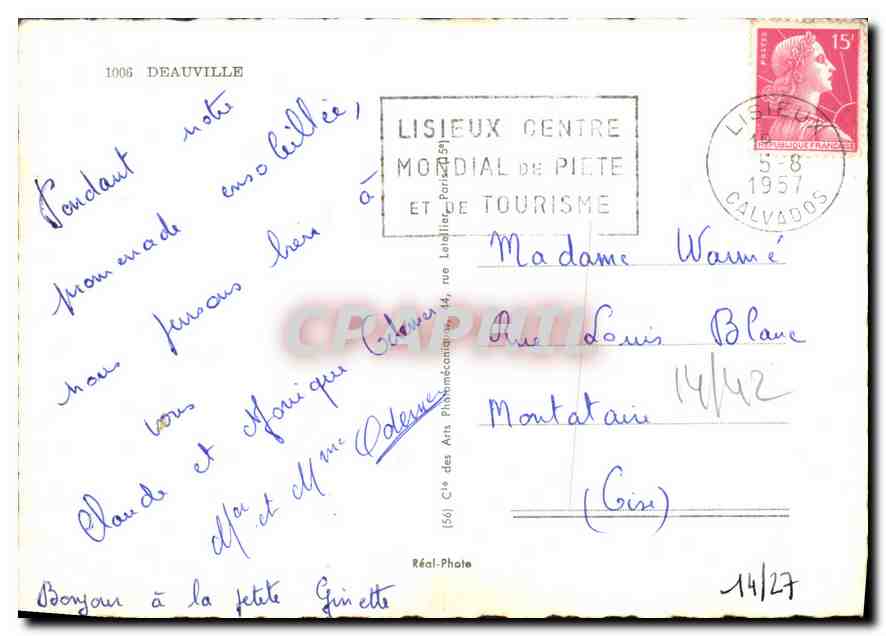 1006 DEAUVILLE
Pendant notre
promenade ensoleillée,
nous pensons bien à
vous
Claude et Monique Odemer
Mr et Mme Odemer
Bonjour à la petite Ginette
(56) Cie des Arts Photomécaniques, 44, rue Letellier, Paris (15e)
Réal-Photo
LISIEUX CENTRE
MONDIAL DE PIETE
ET DE TOURISME
LISIEUX
5-8
1957
CALVADOS
POSTES
15F
REPUBLIQUE FRANÇAISE
Madame Warmé
Rue Louis Blanc
Montataire
(Oise)
14/42
14/27
CPAPHIL